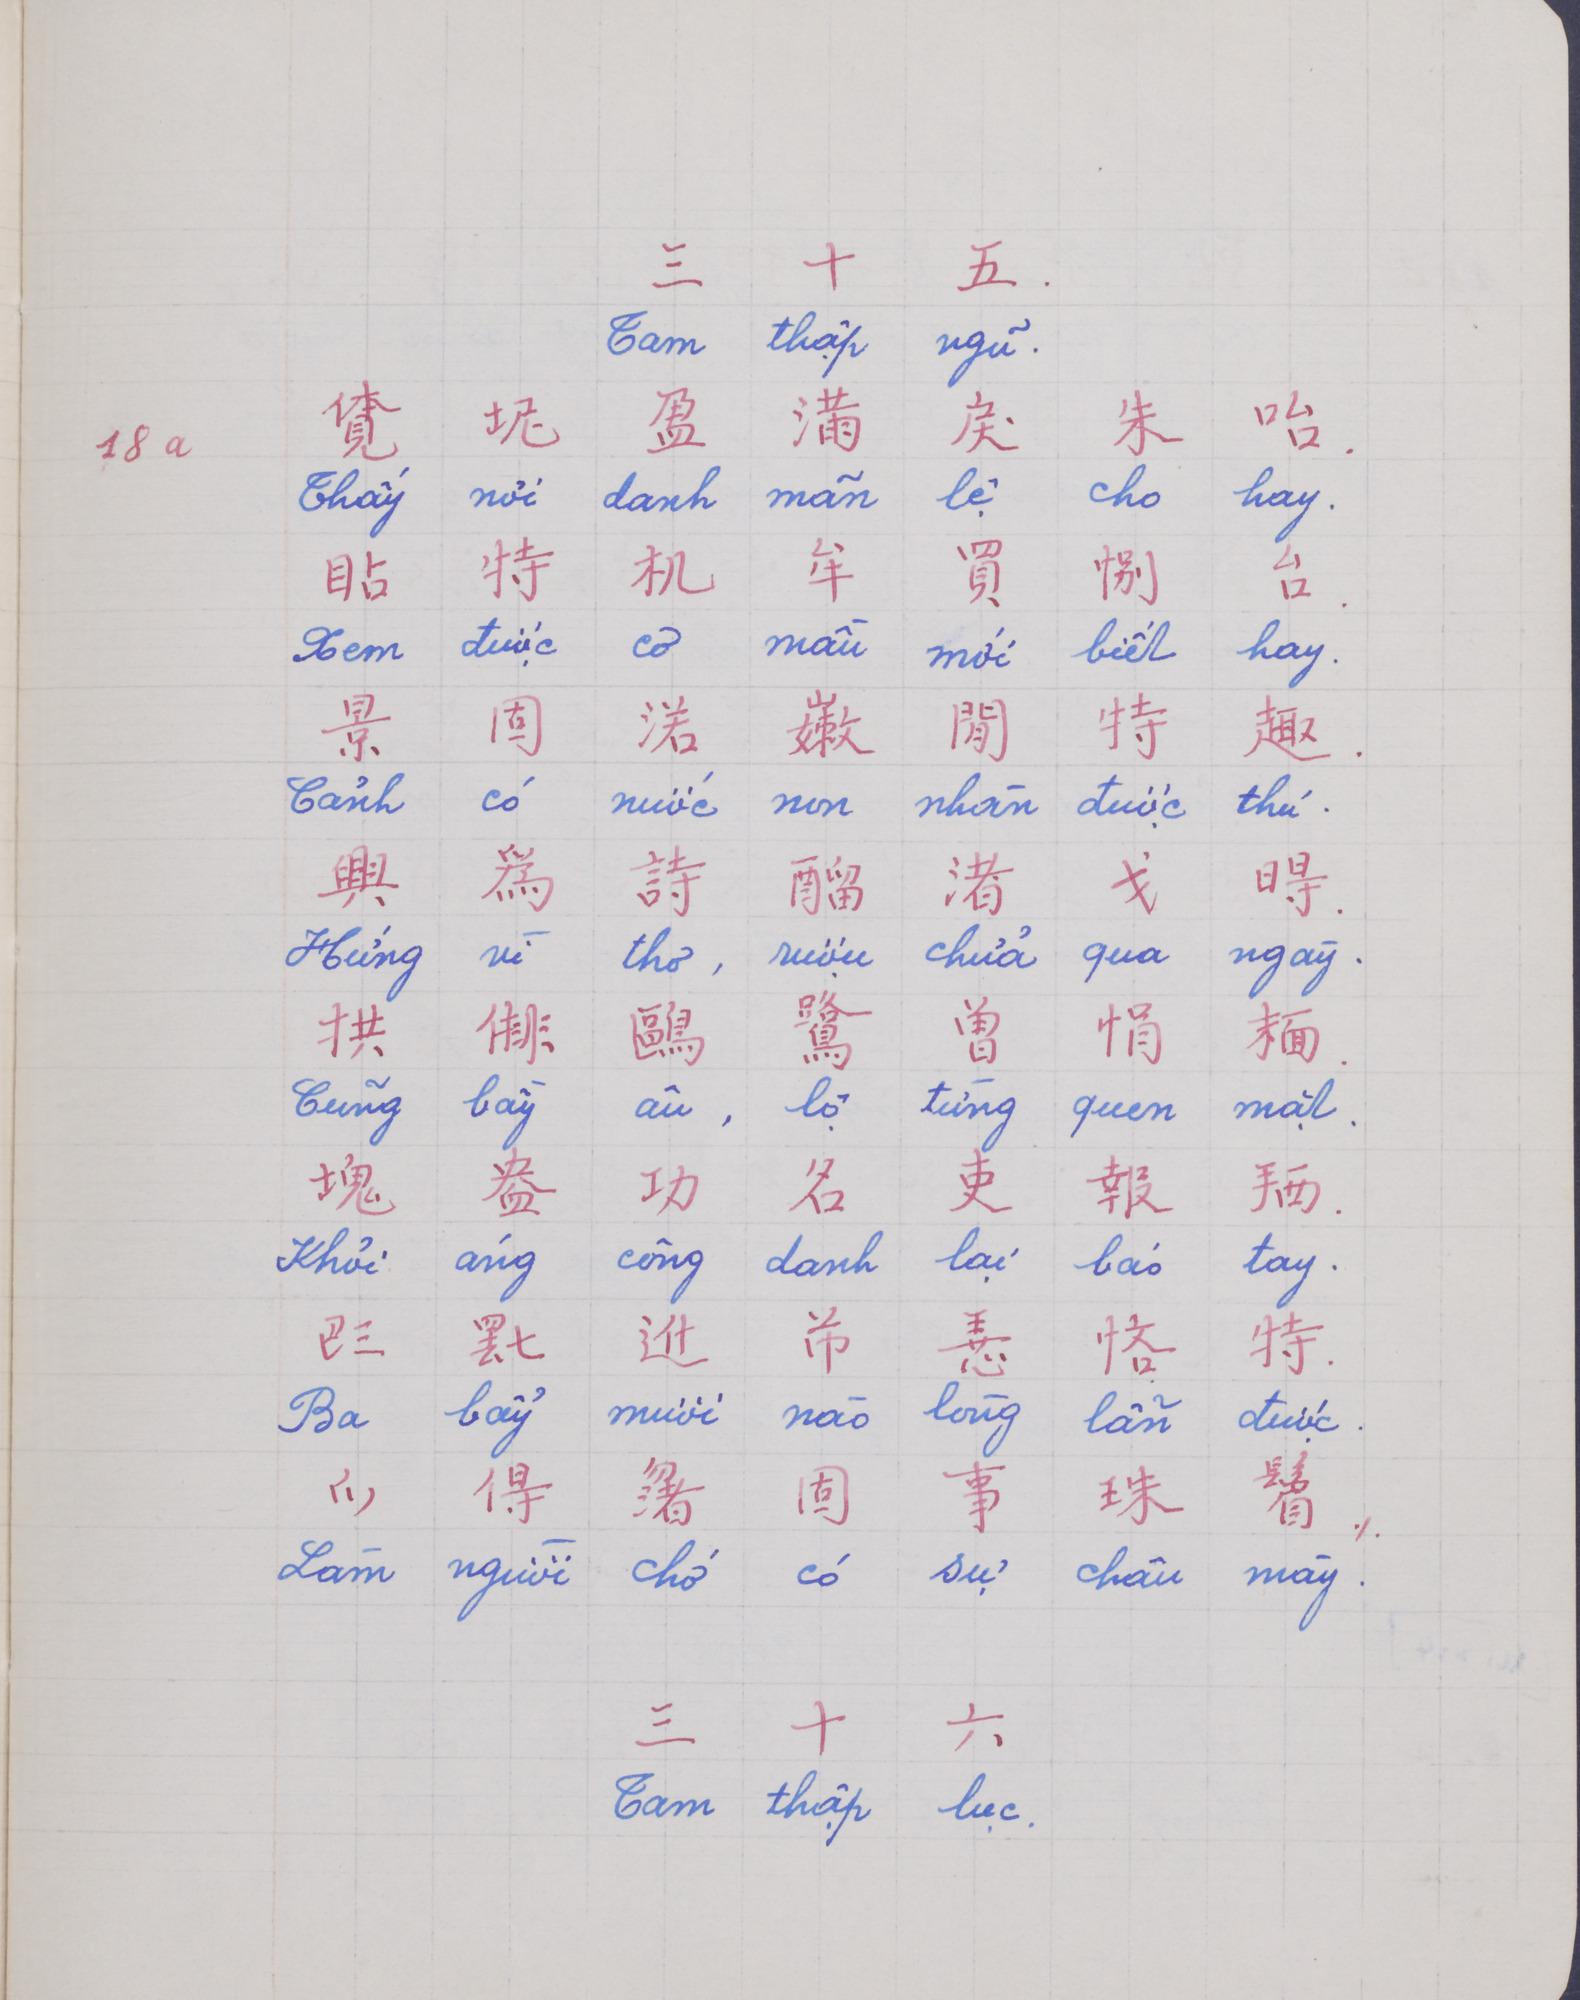 三 十 五.
Tam thập ngũ.
18a
坭 盈 滿 戾 朱 咍.
Thấy nơi danh mãn lệ cho hay.
貼 特 机 牟 買 別 台.
Xem được cơ mầu mới biết hay.
景 固 渃 嫩 閒 特 趣.
Cảnh có nước non nhàn được thú.
興 爲 詩 醹 渚 戈 㝵.
Hứng vì thơ, rượu chửa qua ngày.
拱 鷗 鷺 曽 悁 𩈘.
Cũng bầy âu, lộ từng quen mặt.
塊 盎 功 名 吏 報 𢬣.
Khỏi áng công danh lại báo tay.
𠀧 𦉱 𨑮 芇 𢚸 悋 特.
Ba bảy mười nào lòng lẫn được.
𪜀 得 𪭯 固 事 珠 𩭶 ./.
Làm người chớ có sự châu mày.
三 十 六
Tam thập lục.